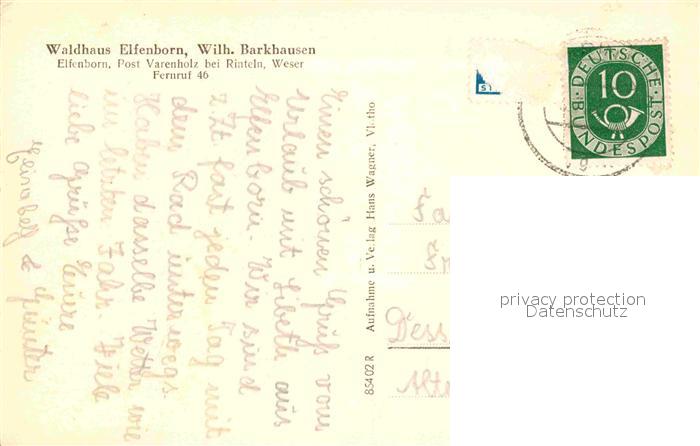 Waldhaus Elfenborn, Wilh. Barkhausen
Elfenborn, Post Varenholz bei Rinteln, Weser
Fernruf 46
Einen schönen Gruß vom
Urlaub mit Libeth aus
Elfenborn. Wir sind
z. Zt. fast jeden Tag mit
dem Rad unterwegs.
Haben dasselbe Wetter wie
im letzten Jahr. Viele
liebe Grüße
& Günter
85402 R Aufnahme u. Verlag Hans Wagner, Vlotho
DEUTSCHE
BUNDESPOST
10
Fa
Fr
Dess
Alte
privacy protection
Datenschutz